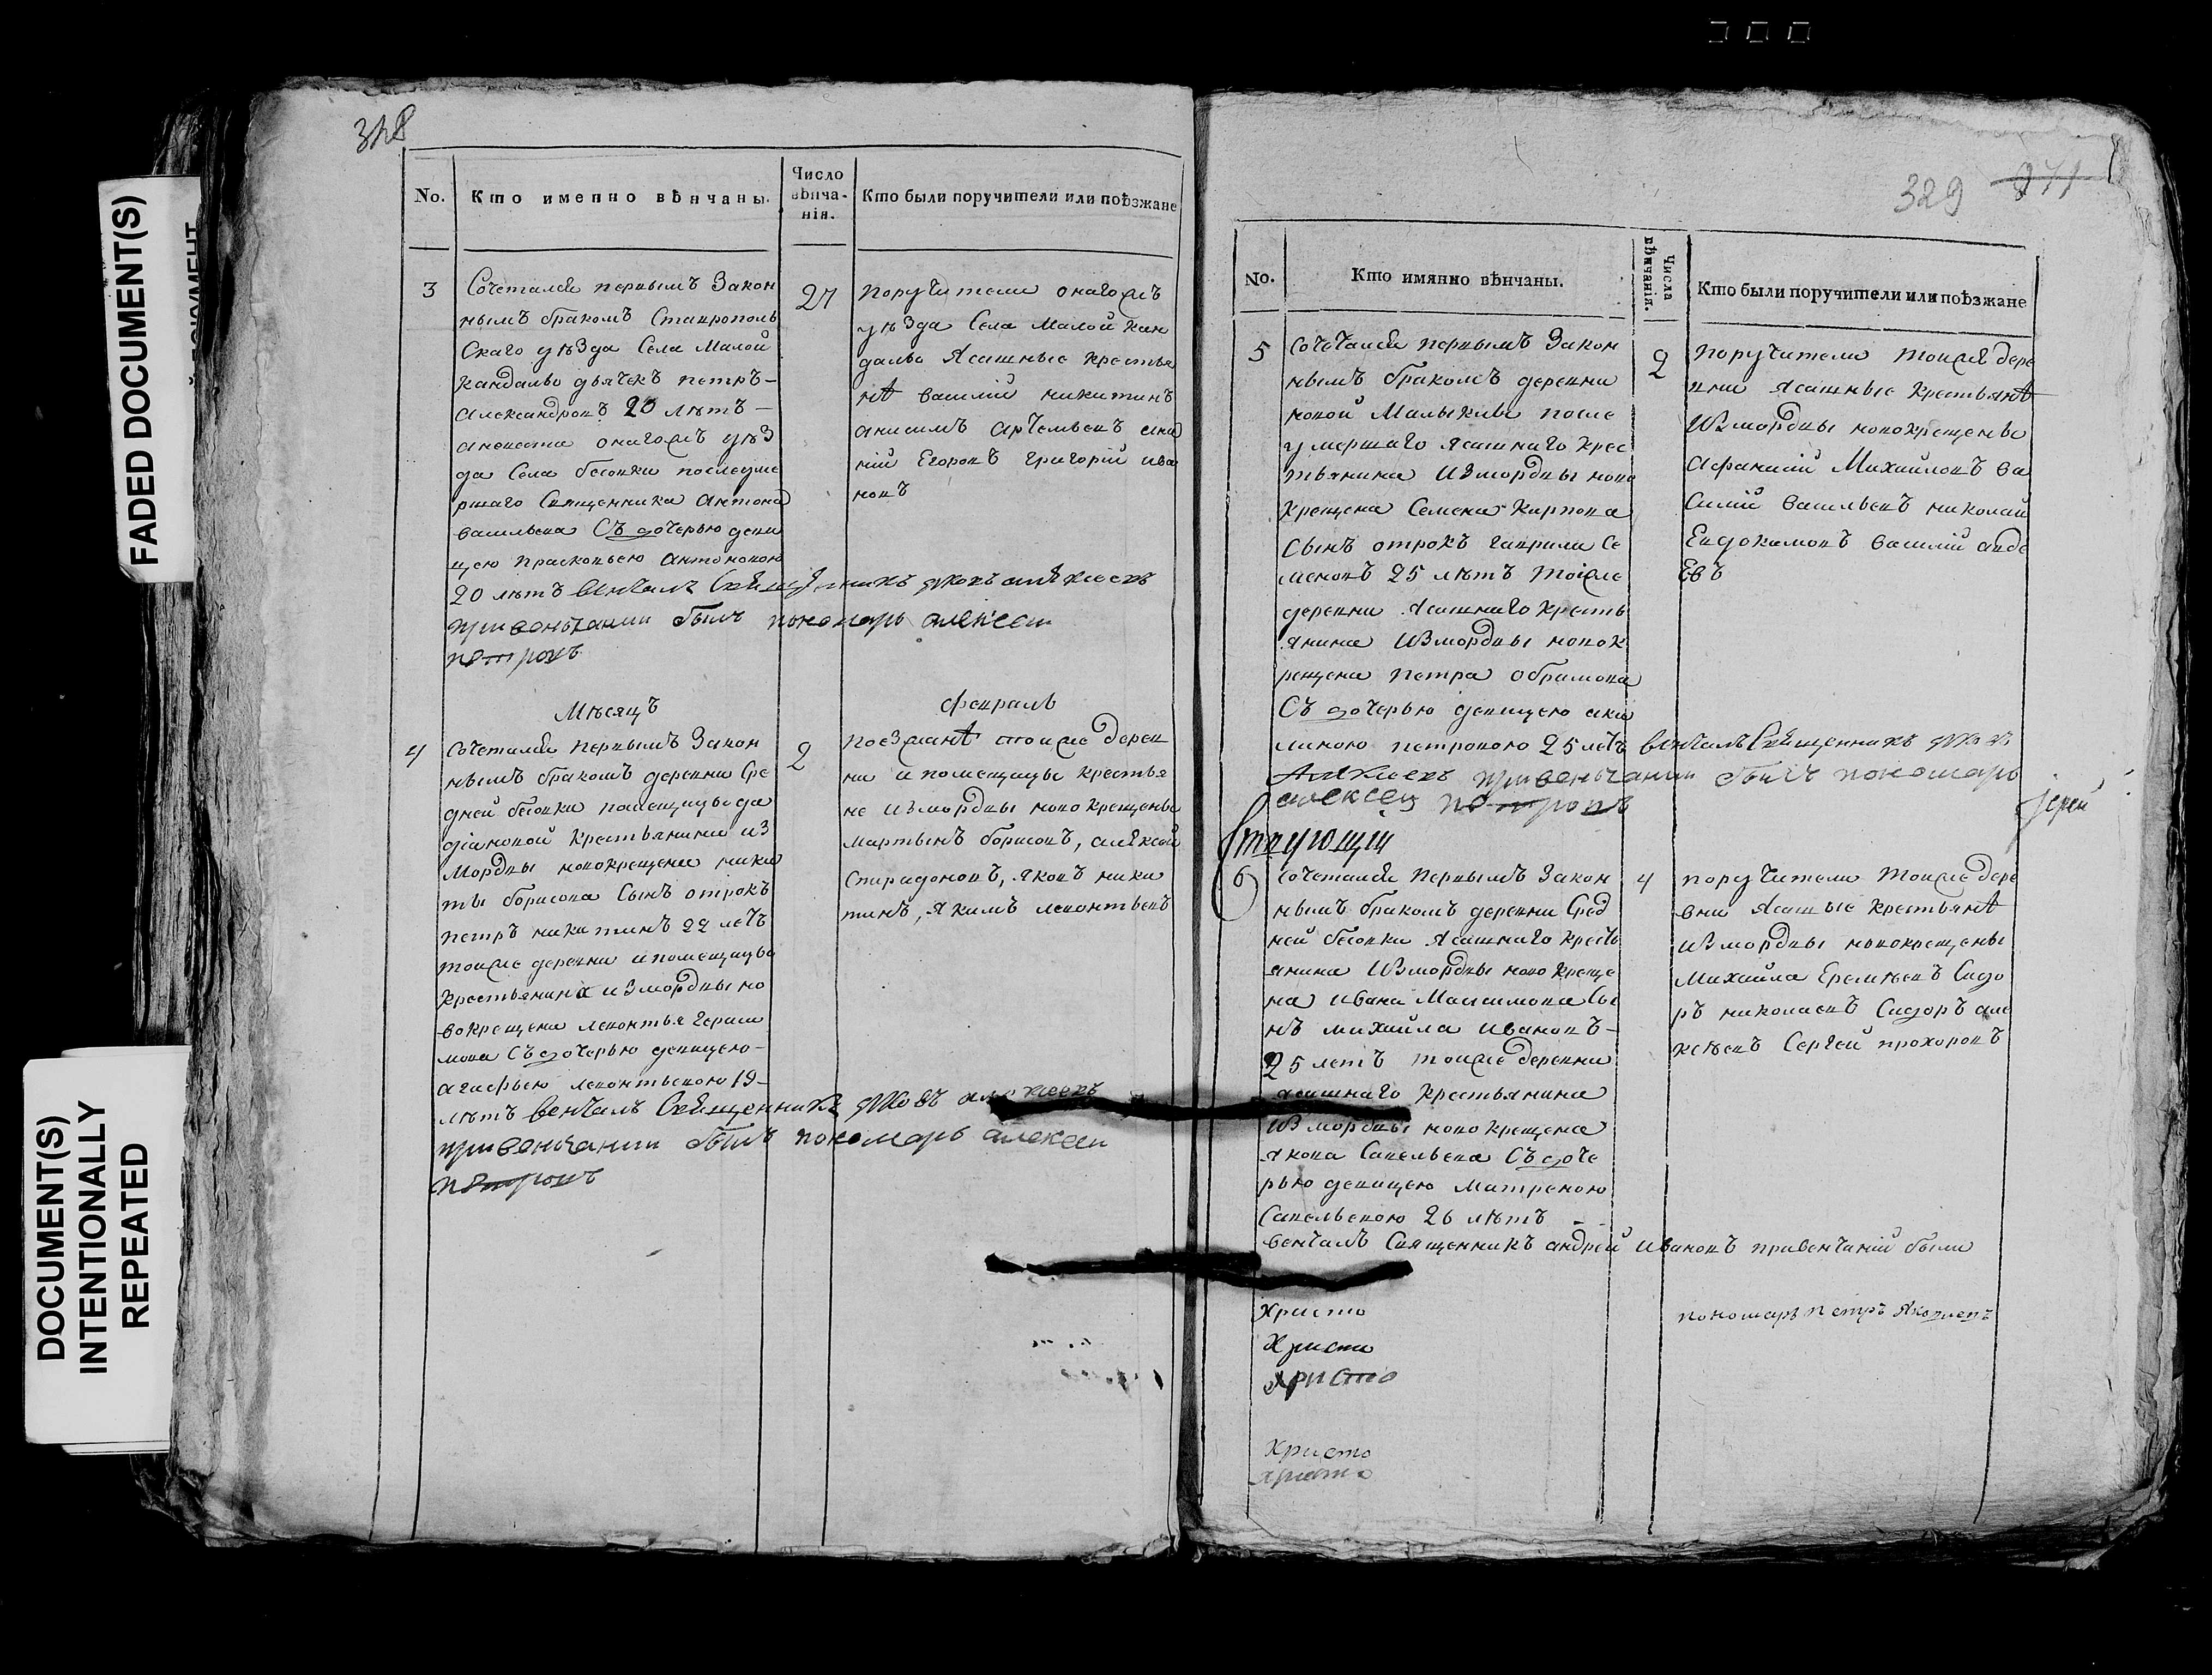 FADED DOCUMENT(S)
DOCUMENT(S)
INTENTIONALLY
REPEATED
328
No.
Кто именно вѣнчаны.
Число
вѣнча-
нія.
Кто были поручители или поѣзжане
3
Сочетался первымъ Закон
нымъ бракомъ Ставрополь
Скаго уѣзда Села Малой
Кандалы дьячекъ петръ-
александровъ 20 лѣтъ-
онагожъ уѣз
да Села бесовки послеуме
ршаго Священника антона
васильева Съ дочерью деви
цею прасковьею антоновою
20 лѣтъ венчалъ Священникъ яковъ алексеевъ
привенчании былъ пономарь алексеи
петровъ
27
поручители онагожъ
уѣзда Села Малой кан
далы Ясашные крестья
нѣ василий никитинъ
анисимъ артемьевъ
ній Егоровъ григорій ива
новъ
Мѣсяцъ
февраль
4
Сочетался первымъ Закон
нымъ бракомъ деревни Сре
дней бесовки помещицы да
діановой крестьянина из
Мордвы новокрещена ники
ты борисова Сынъ отрокъ
петръ никитинъ 22 летъ
тоиже деревни и помещицы
крестьянина измордвы но
вокрещена леонтья гераси
мова Съ дочерью девицею-
агафьею леонтьевою 19-
лѣтъ венчалъ Священникъ яковъ алексеевъ
привенчании былъ пономарь алексеи
петровъ
2
поезжанѣ тоиже дерев
ни и помещицы крестья
не измордвы новокрещены
мартынъ борисовъ, алексей
Спиридоновъ, яковъ ники
тинъ, якимъ леонтьевъ
329
271
No.
Кто имянно вѣнчаны.
Числа
вѣнчанія.
Кто были поручители или поѣзжане
5
Сочетался первымъ Закон
нымъ бракомъ деревни
новой Малыклы после
умершаго ясашнаго крес
тьянина измордвы ново
крещена Семена карпова
Сынъ отрокъ гаврила Се
меновъ 25 лѣтъ тоиже
деревни ясашнаго кресть
янина измордвы новок
рещена петра обрамова
Съ дочерью девицею аку
линою петровою 25 летъ венчалъ Священникъ яковъ
Алексеевъ привенчании былъ пономарь
алексеи петровъ
2
поручители тоижа дере
вни ясашные крестьянѣ
измордвы новокрещены
афанасий Михайловъ ва
Силий васильевъ николай
Евдокимовъ василий авде
Евъ
іерей
6
Сочетался первымъ Закон
нымъ бракомъ деревни Сред
ней бесовки ясашнаго кресть
янина измордвы новокреще
на ивана Максимова Сы
нъ михайла ивановъ-
25 летъ тоиже деревни
ясашнаго крестьянина
измордвы новокрещена
якова Савельева Съ доче
рью девицею матреною
Савельевою 26 лѣтъ
венчалъ Священникъ андрей ивановъ привенчаний были
4
поручители тоиже дере
вни Ясашые крестьянѣ
измордвы новокрещены
Михайла Еремѣевъ Сидо
ръ николаевъ Сидоръ але
ксѣевъ Сергей прохоровъ
пономарь петръ яковлевъ
Христо
Христи
Христо
Христо
Христо